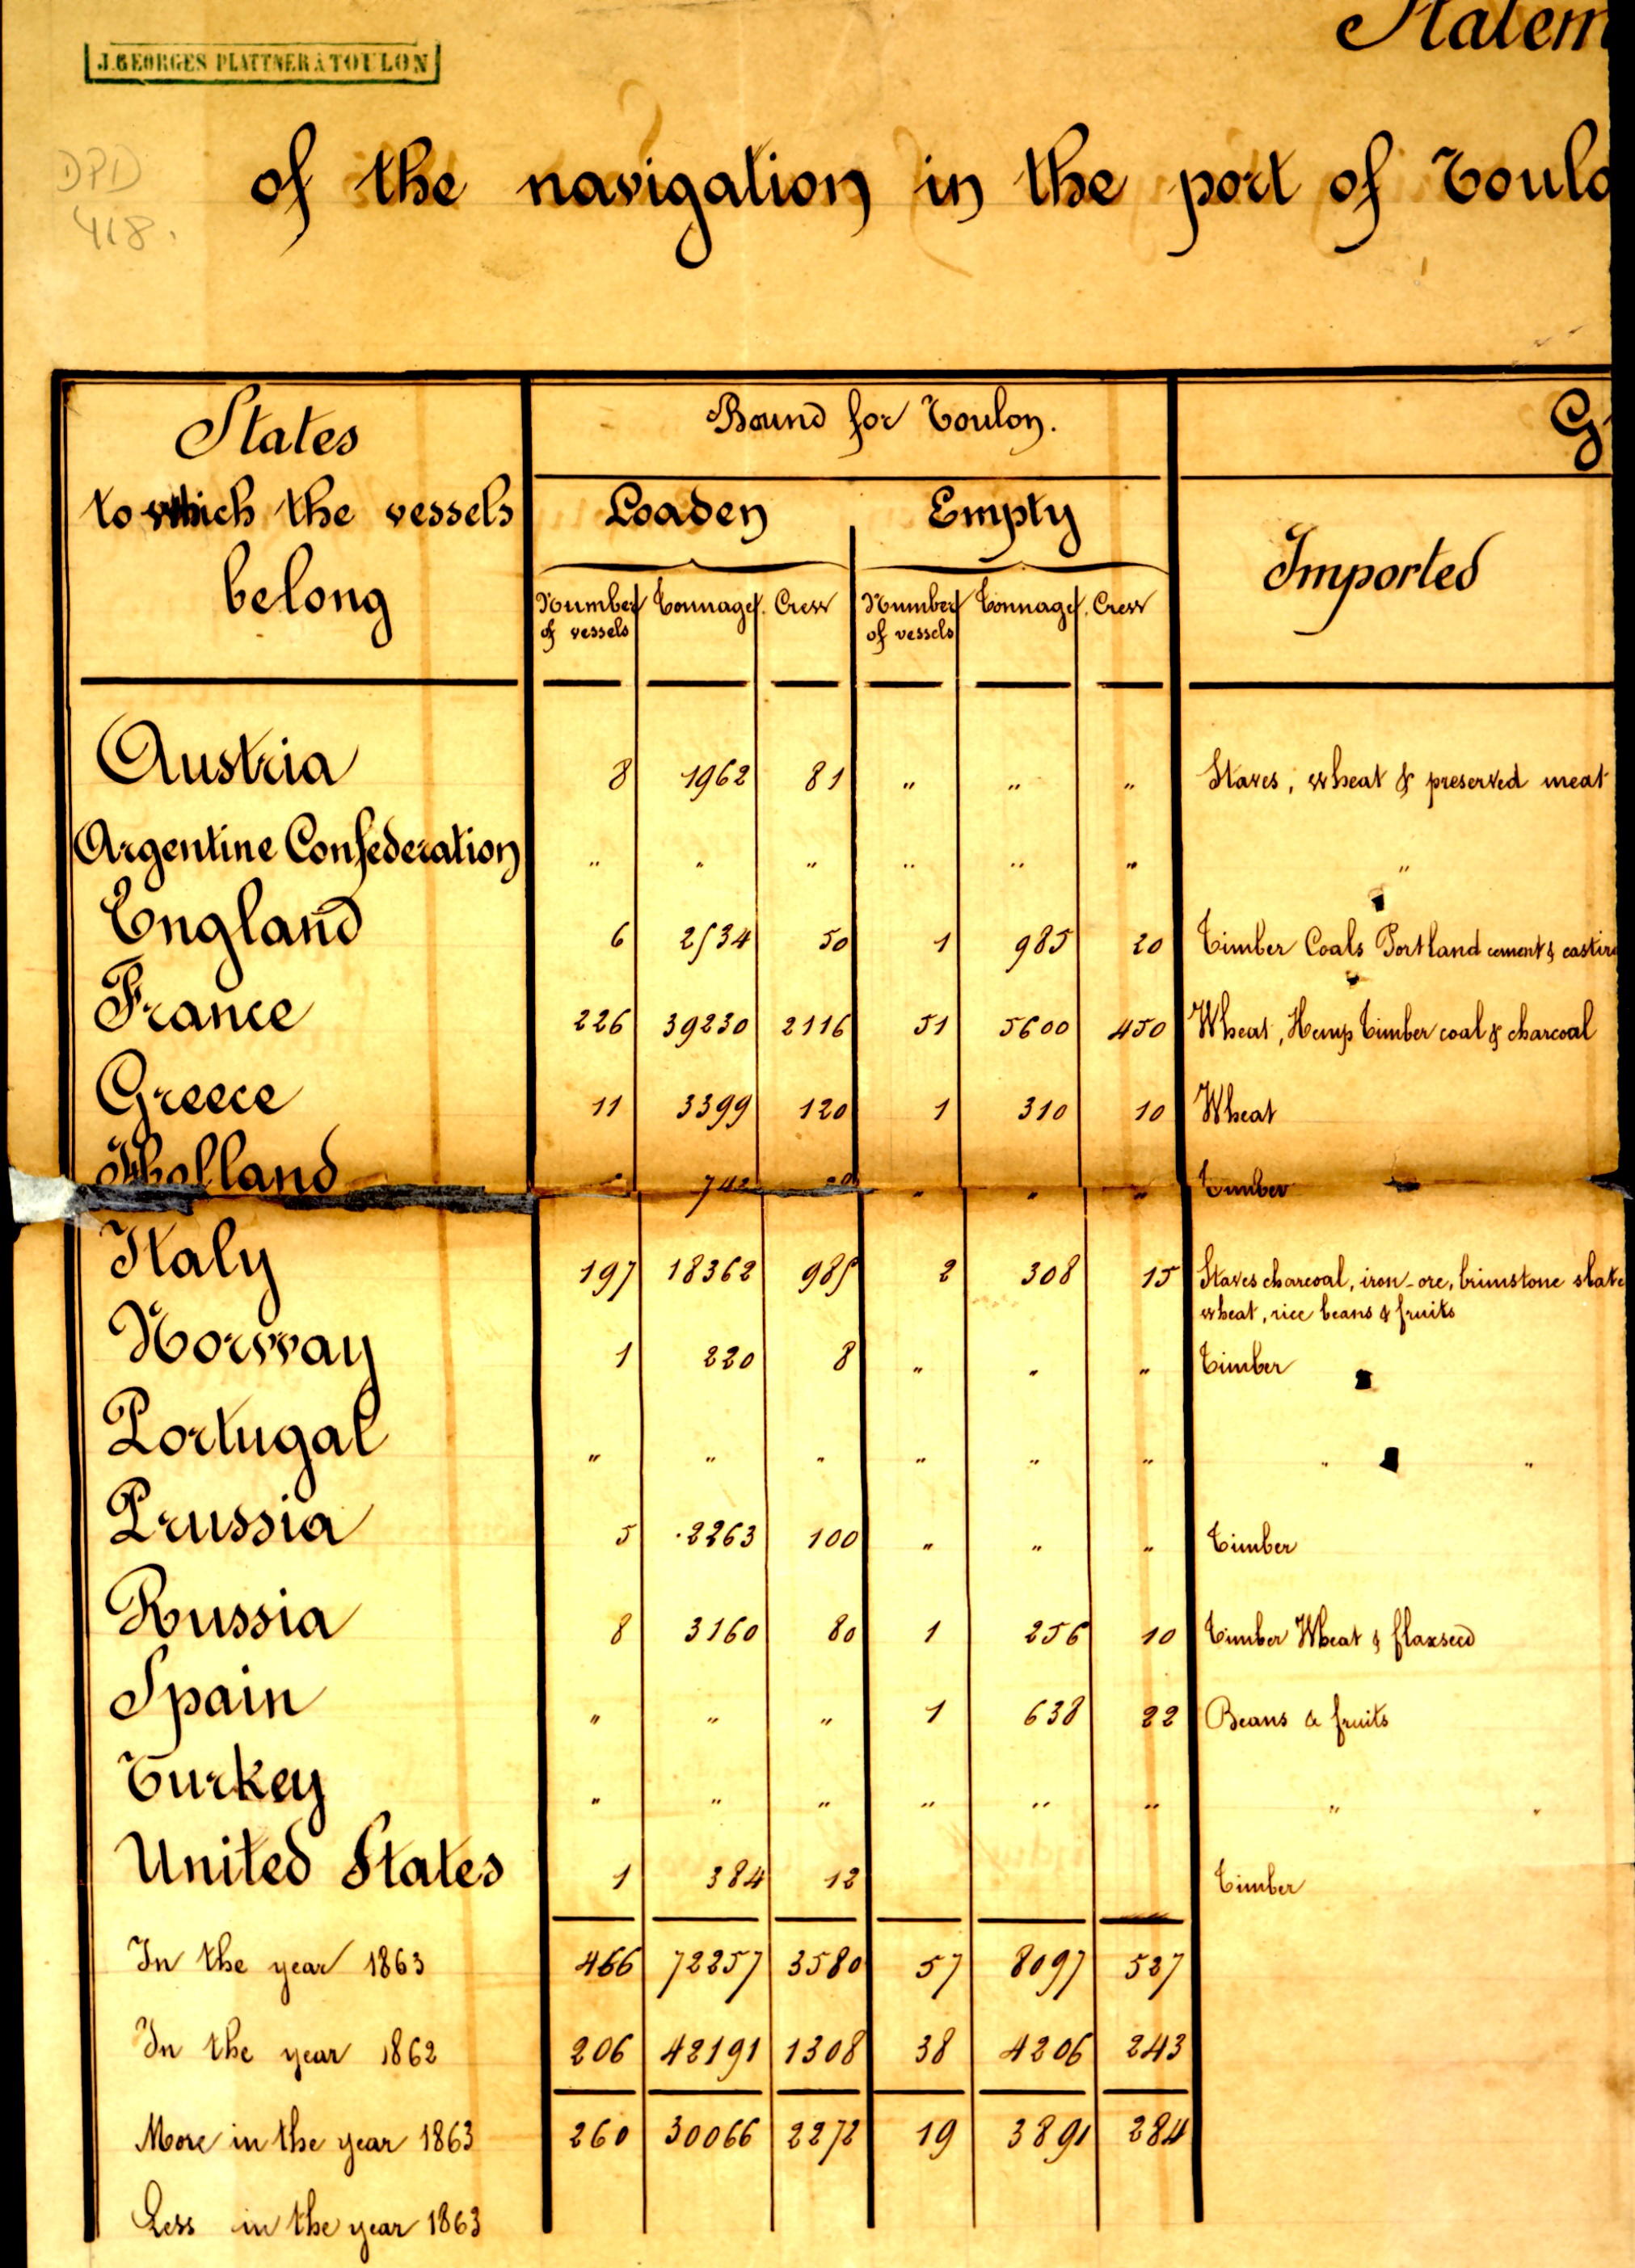 J. GEORGES PLATTNER À TOULON
Statem
DPD
418.
of the navigation in the port of Toulo
States
to which the vessels
belong
Bound for Toulon.
G
Loaden Empty
Imported
Number of vessels Tonnage Crew Number of vessels Tonnage Crew
Austria 8 1962 81 " " " Staves, wheat & preserved meat
Argentine Confederation " " " " " " "
England 6 2534 50 1 985 20 Timber Coals Portland cement & castiro
France 226 39230 2116 51 5600 450 Wheat, Hemp Timber coal & charcoal
Greece 11 3399 120 1 310 10 Wheat
Holland " " " Timber
Italy 197 18362 985 2 308 15 Staves charcoal, iron-ore, brimstone slate
wheat, rice beans & fruits
Norway 1 220 8 " " " Timber
Portugal " " " " " " " "
Prussia 5 2263 100 " " " Timber
Russia 8 3160 80 1 256 10 Timber Wheat & flaxseed
Spain " " " 1 638 22 Beans & fruits
Turkey " " " " " " " "
United States 1 384 12 Timber
In the year 1863 466 72257 3580 57 8097 527
In the year 1862 206 42191 1308 38 4206 243
More in the year 1863 260 30066 2272 19 3891 284
Less in the year 1863